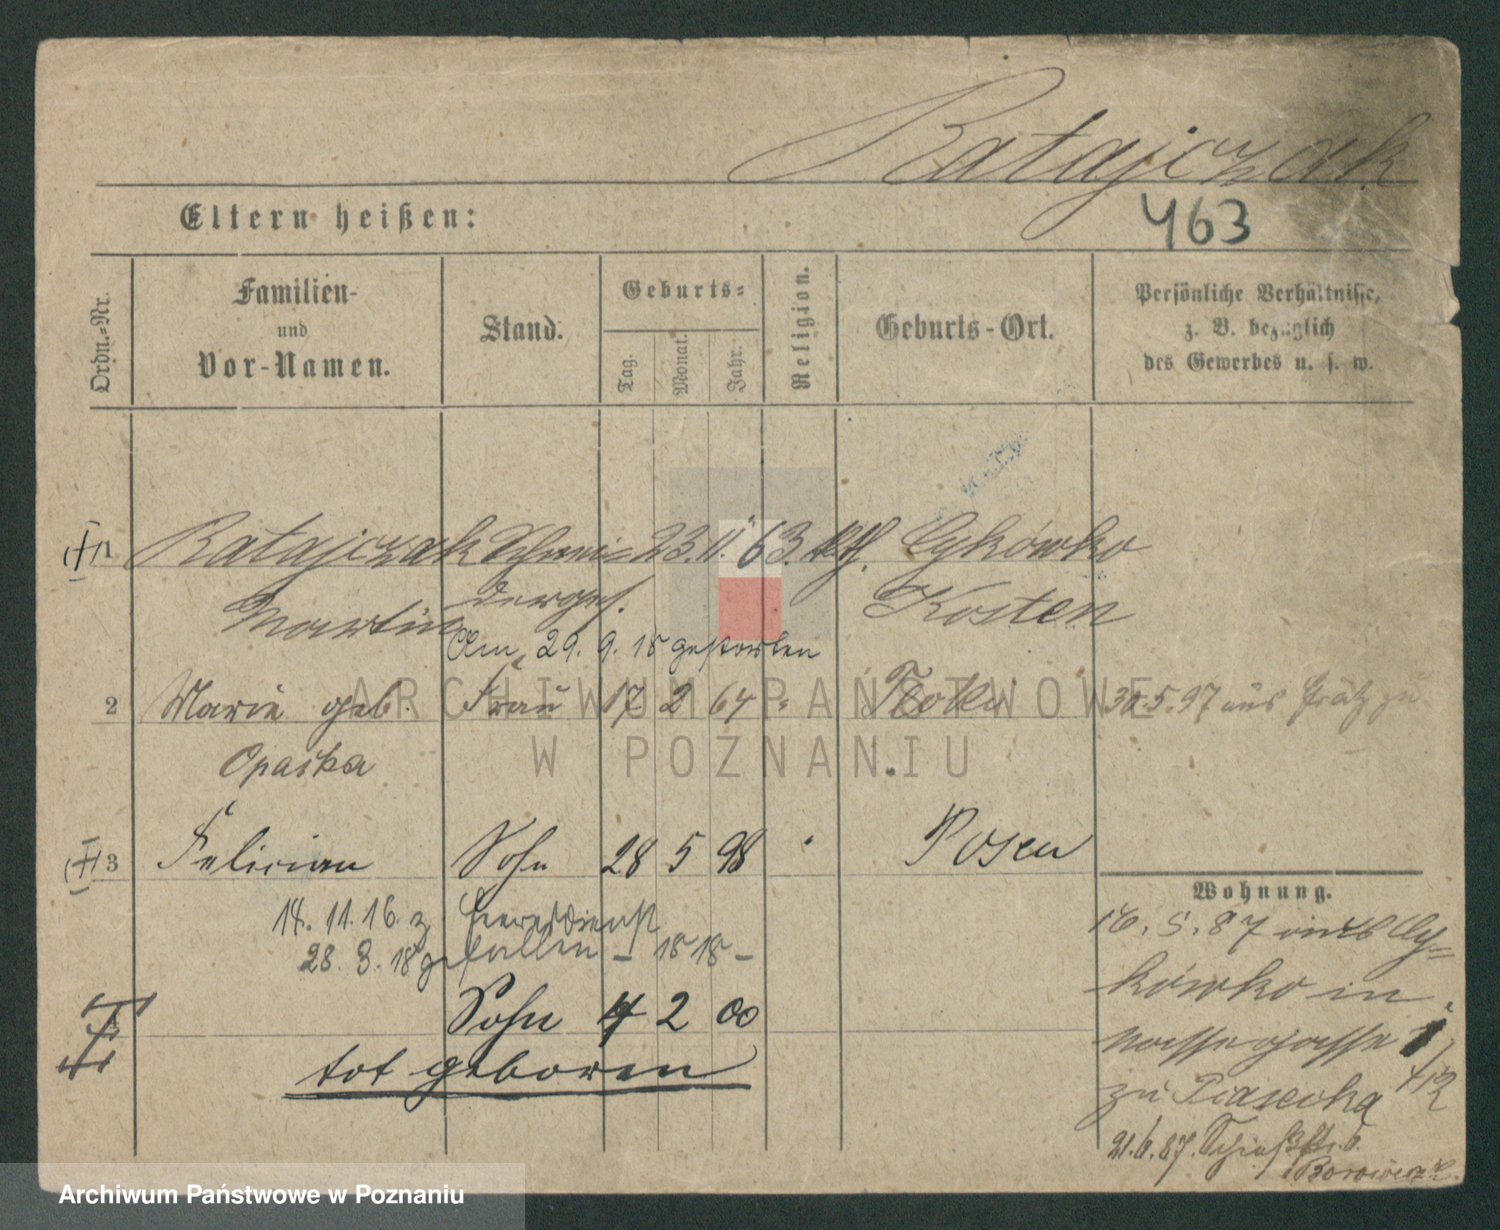 Ratajczak
463
Eltern heißen:
Ordn.-Nr.
Familien-
und
Vor-Namen.
Stand.
Geburts-
Tag.
Monat.
Jahr.
Religion.
Geburts-Ort.
Persönliche Verhältnisse,
z. B. bezüglich
des Gewerbes u. s. w.
1 Ratajczak Schnei= 23. 11. 63. kth. Cykówko
Martin derges. Kosten
Am 29. 9. 18 gestorben
2 Marie geb. Frau 17 2 64 " 30.5.97 aus Grätz zu
Opaska
3 Felician Sohn 28 5 98 " Posen
14. 11. 16. z. Heeresdienst
28. 3. 18 gefallen – 1818 –
Sohn 2 00
tot geboren
Wohnung.
5. 87 Cy=
kówko in
zu Piasecka
21.6.87.
ARCHIWUM PAŃSTWOWE
W POZNANIU
Archiwum Państwowe w Poznaniu